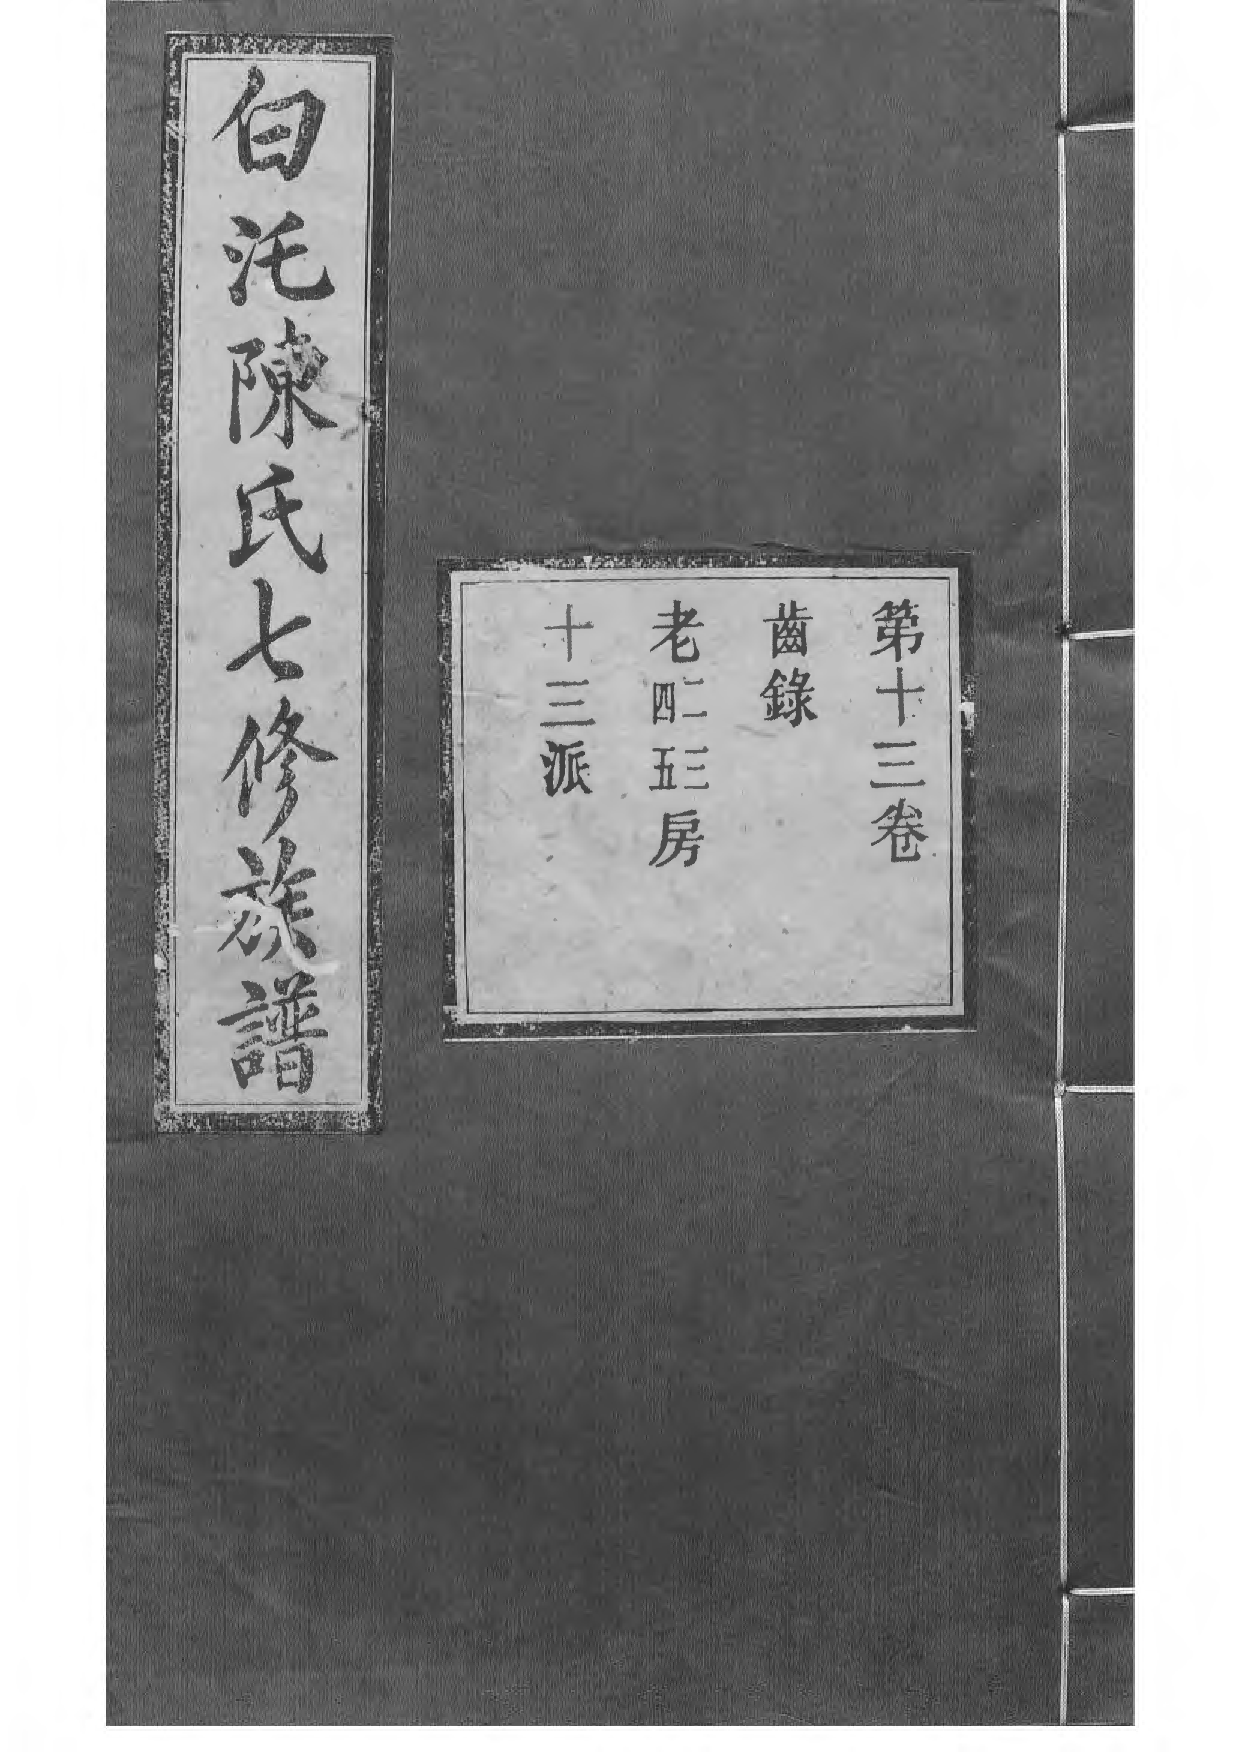 白沱陳氏七修族譜
第十三卷
齒錄
老二三四五房
十三派